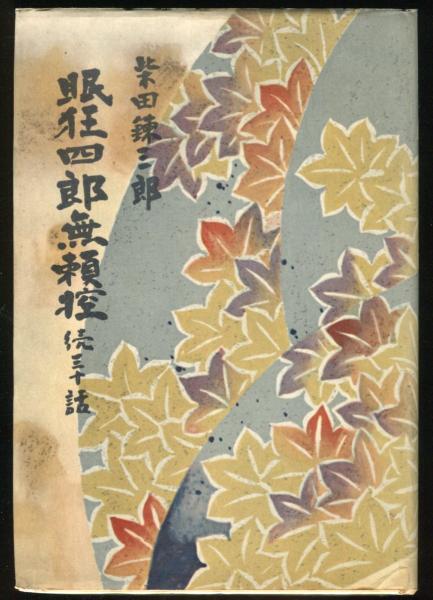 柴田錬三郎
眠狂四郎無頼控
続三十話